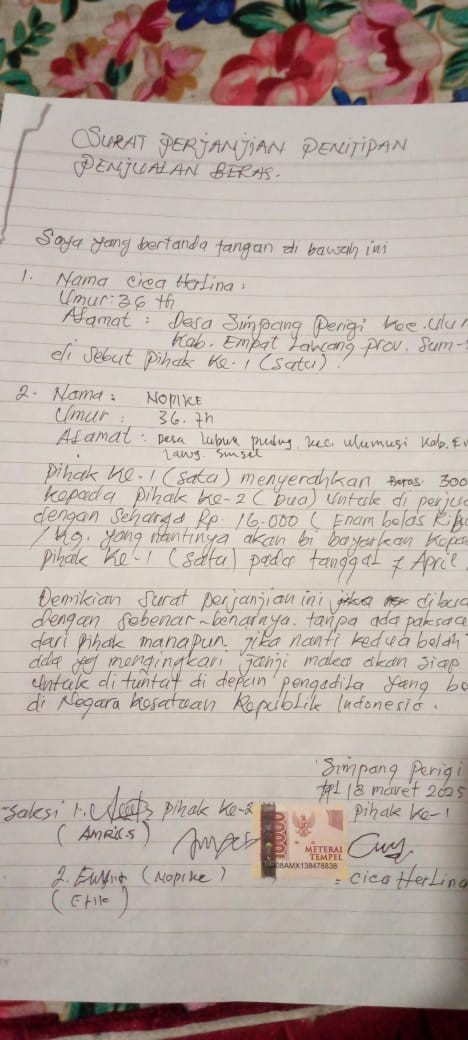 SURAT PERJANJIAN PENITIPAN
PENJUALAN BERAS.
Saya yang bertanda tangan di bawah ini
1. Nama cica Herlina:
Umur: 36 th
Alamat: Desa Simpang Perigi kec. Ulu
Kab. Empat Lawang prov. Sum-
di sebut pihak ke. 1 (satu).
2. Nama: NOPIKE
Umur: 36. th
Alamat: Desa lubuk puding. kec. ulumusi Kab. E
Lawg. sumsel
pihak ke. 1 (satu) menyerahkan Beras 300
kepada pihak ke-2 (Dua) Untuk di perju
dengan seharga Rp. 16.000 (Enam belas Rib
/kg. yang nantinya akan bi bayarkan kepa
pihak ke-1 (satu) pada tanggal 7 April.
Demikian surat perjanjian ini dibua
dengan sebenar-benarnya. tanpa ada paksaa
dari pihak manapun. jika nanti kedua belah
ada yg mengingkari janji maka akan siap
untuk di tuntut di depan pengadila yang be
di Negara kesatuan Republik Indonesia.
Simpang Perigi
tgl 18 maret 2025
Saksi 1. pihak ke-2 pihak ke-1
(AMRIS)
10000
METERAI
TEMPEL
08AMX138478838
2. (Nopike) cica Herlina